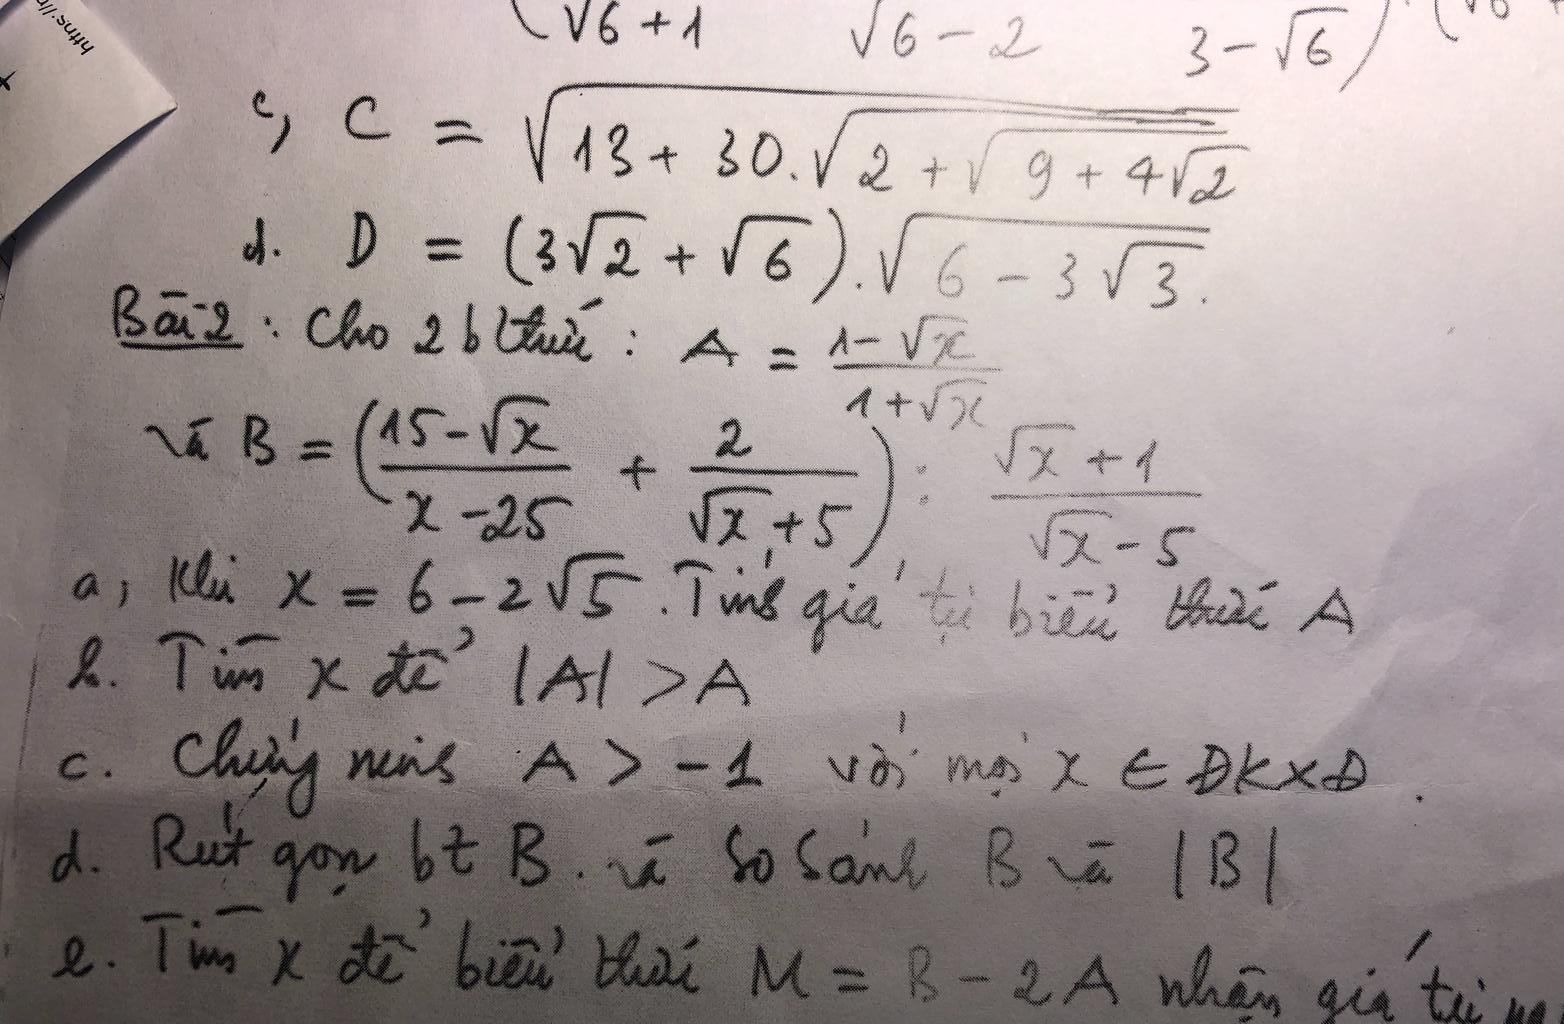 https://
(√6+1 √6-2 3-√6)
c, C = √(13 + 30.√(2 + √(9 + 4√2)))
d. D = (3√2 + √6).√(6 - 3√3).
Bài 2 : Cho 2 b thức : A = (1-√x)/(1+√x)
và B = ((15-√x)/(x-25) + 2/(√x+5)) : (√x+1)/(√x-5)
a, Khi x = 6-2√5. Tính giá trị biểu thức A
b. Tìm x để |A| > A
c. Chứng minh A > -1 với mọi x ∈ ĐKXĐ.
d. Rút gọn bt B. và So Sánh B và |B|
e. Tìm x để biểu thức M = B - 2A nhận giá trị